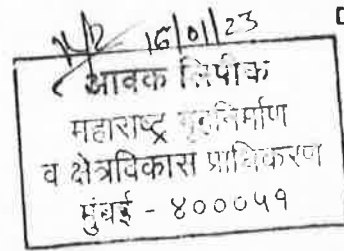 16/01/23
आवक लिपीक
महाराष्ट्र गृहनिर्माण
व क्षेत्रविकास प्राधिकरण
मुंबई - ४०००५१